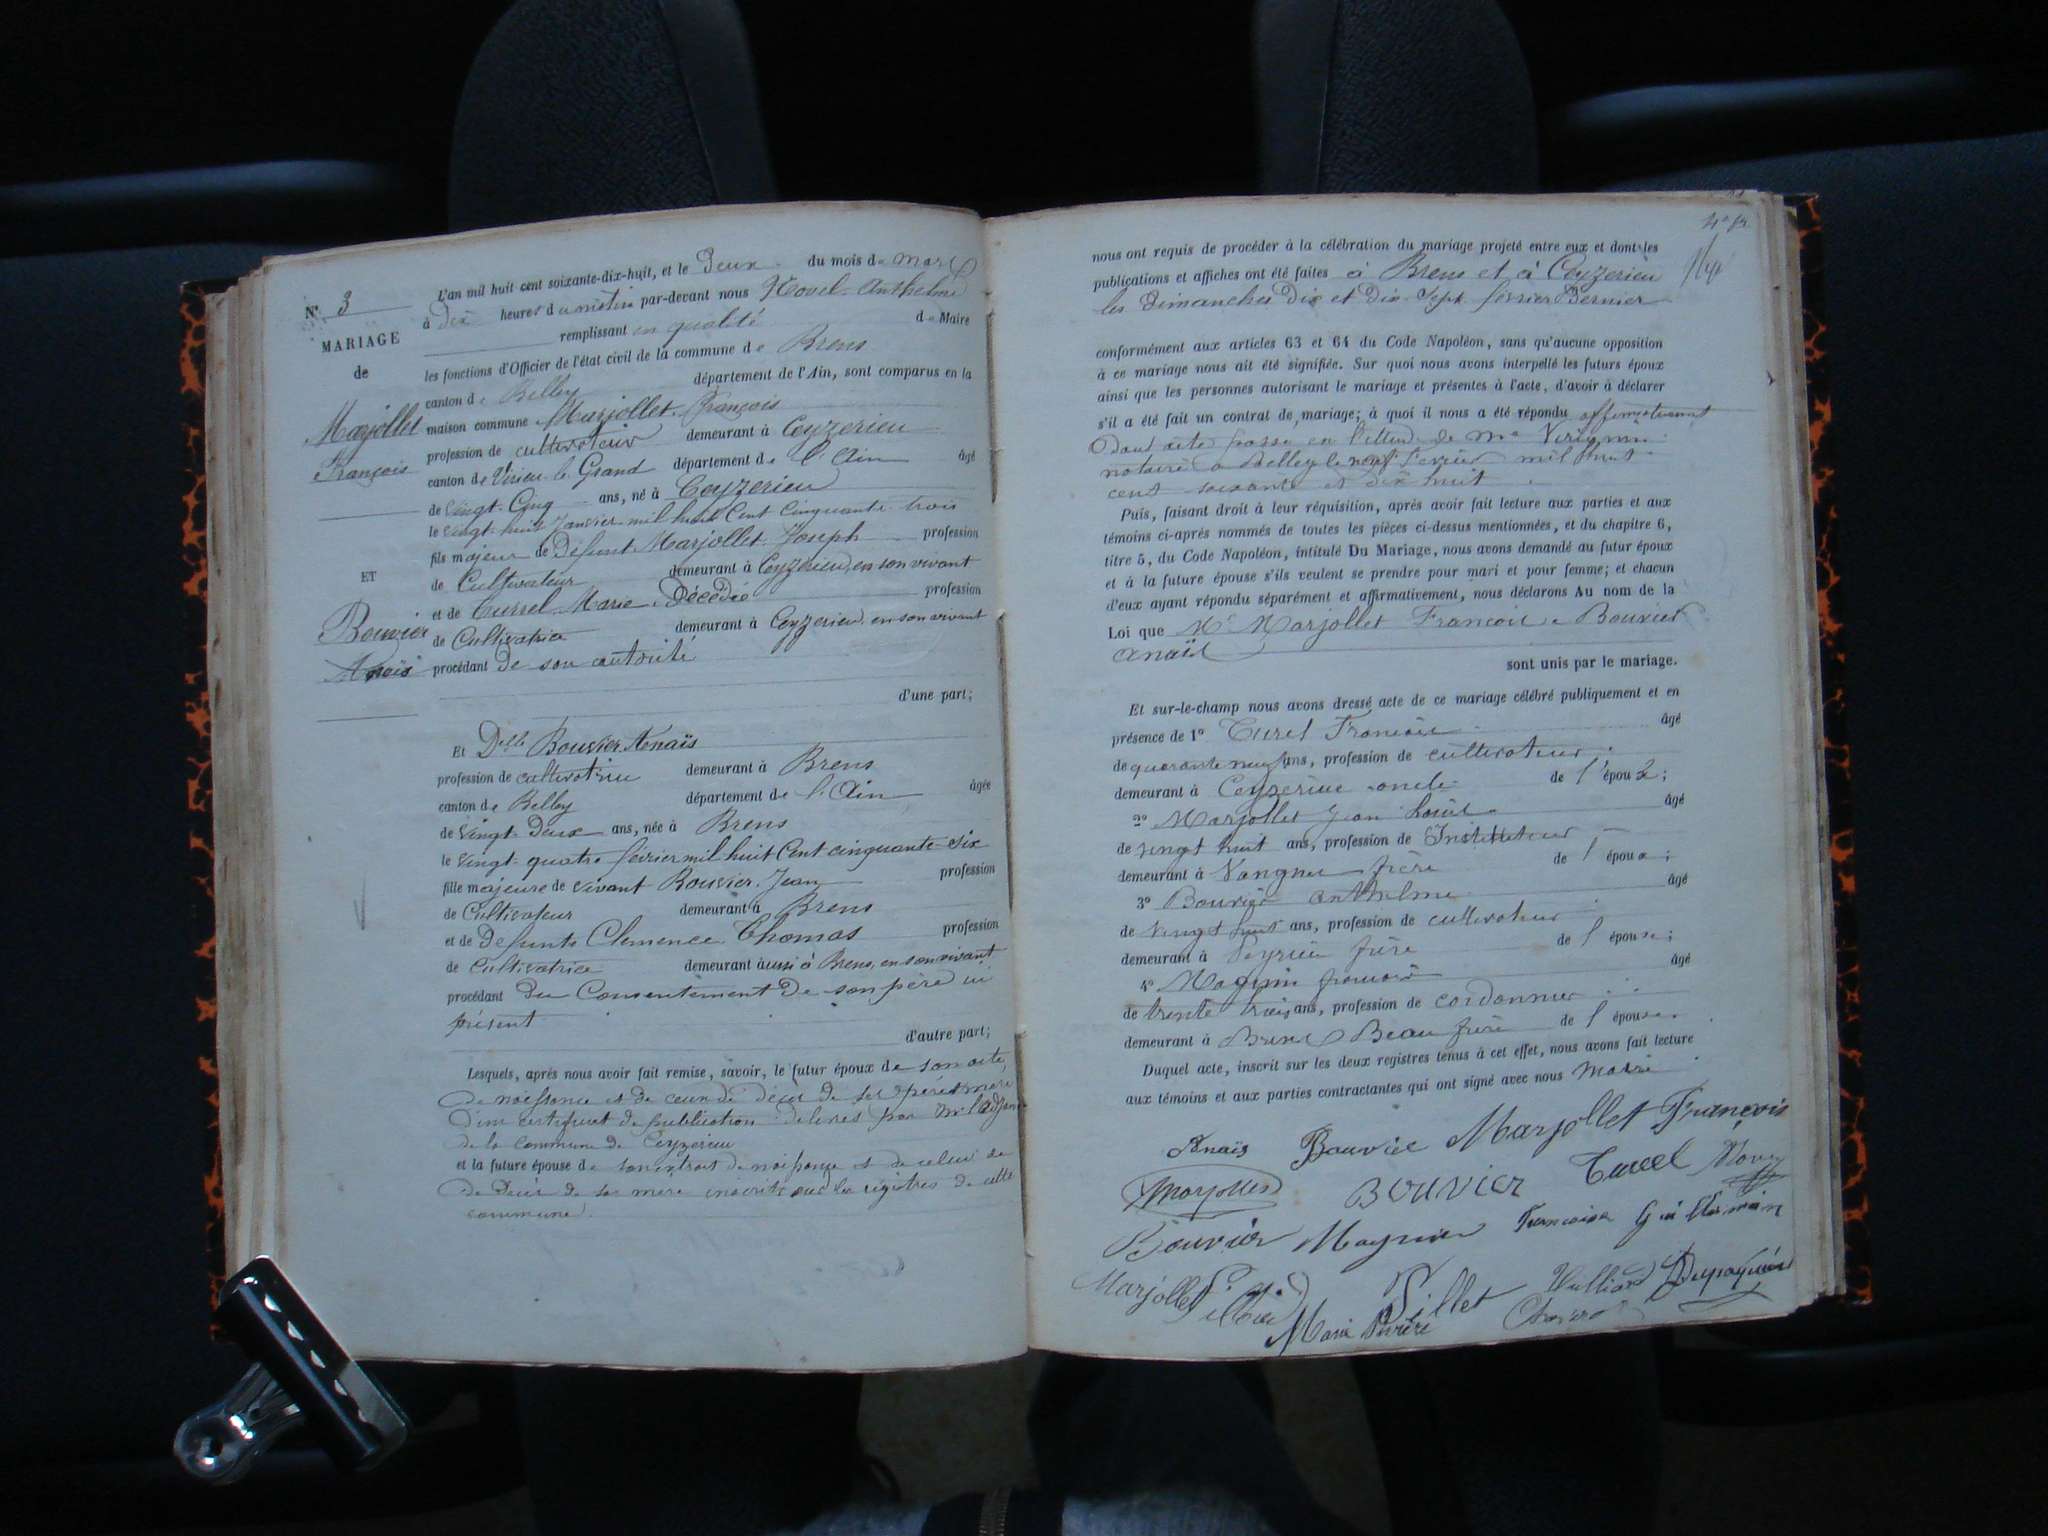 N° 3
MARIAGE
de
Marjollet
François
ET
Bouvier
Anaïs
L'an mil huit cent soixante-dix-huit, et le Deux du mois de mars
à Dix heures du matin par-devant nous Hovel Anthelme
remplissant en qualité de Maire
les fonctions d'Officier de l'état civil de la commune de Brens
canton de Belley département de l'Ain, sont comparus en la
maison commune Marjollet François
profession de cultivateur demeurant à Ceyzerieu
canton de Virieu-le-Grand département de l'Ain âgé
de Vingt-Cinq ans, né à Ceyzerieu
le vingt-huit Janvier mil huit Cent Cinquante-trois
fils majeur de Défunt Marjollet Joseph profession
de Cultivateur demeurant à Ceyzerieu, en son vivant
et de Curssel Marie Décédée profession
de Cultivatrice demeurant à Ceyzerieu, en son vivant
procédant De son autorité
d'une part;
Et Delle Bouvier Anaïs
profession de cultivatrice demeurant à Brens
canton de Belley département de l'Ain âgée
de Vingt-Deux ans, née à Brens
le vingt-quatre février mil huit Cent cinquante-six
fille majeure de vivant Bouvier Jean profession
de Cultivateur demeurant à Brens
et de Defunte Clemence Thomas profession
de Cultivatrice demeurant aussi à Brens, en son vivant
procédant du Consentement De son père ici
présent
d'autre part;
Lesquels, après nous avoir fait remise, savoir, le futur époux de son acte
De naissance et de ceux de Décès de ses père et mere
D'un certificat de publication delivré par Mr l'adjoint
de la commune de Ceyzerieu
et la future épouse de son extrait de naissance et de celui de
De Decès de sa mère inscrits sur les registres de cette
commune.
nous ont requis de procéder à la célébration du mariage projeté entre eux et dont les
publications et affiches ont été faites à Brens et à Ceyzerieu
les Dimanches Dix et Dix-Sept février Dernier
conformément aux articles 63 et 64 du Code Napoléon, sans qu'aucune opposition
à ce mariage nous ait été signifiée. Sur quoi nous avons interpellé les futurs époux
ainsi que les personnes autorisant le mariage et présentes à l'acte, d'avoir à déclarer
s'il a été fait un contrat de mariage; à quoi il nous a été répondu affirmativement
Dont acte passé en l'étude de Me
notaire à Belley le neuf Fevrier mil huit
cent soixante et dix huit
Puis, faisant droit à leur réquisition, après avoir fait lecture aux parties et aux
témoins ci-après nommés de toutes les pièces ci-dessus mentionnées, et du chapitre 6,
titre 5, du Code Napoléon, intitulé Du Mariage, nous avons demandé au futur époux
et à la future épouse s'ils veulent se prendre pour mari et pour femme; et chacun
d'eux ayant répondu séparément et affirmativement, nous déclarons Au nom de la
Loi que Mr Marjollet Francois e Bouvier
Anaïs
sont unis par le mariage.
Et sur-le-champ nous avons dressé acte de ce mariage célébré publiquement et en
présence de 1° Curel Francois âgé
de quarante neuf ans, profession de cultivateur
demeurant à Ceyzerieu oncle de l'époux;
2° Marjollet Jean Louis âgé
de vingt huit ans, profession de Instituteur
demeurant à frère de l'époux;
3° Bouvier anthelme âgé
de Vingt huit ans, profession de cultivateur
demeurant à Peyrieu frère de l'épouse;
4° Magnin francois âgé
de trente trois ans, profession de cordonnier
demeurant à Brens Beau frère de l'épouse.
Duquel acte, inscrit sur les deux registres tenus à cet effet, nous avons fait lecture
aux témoins et aux parties contractantes qui ont signé avec nous Maire
Anaïs Bouvier Marjollet François
Marjollet Bouvier Curel
Bouvier Magnin Francoise Guillermin
Marjollet Pillet
Marie